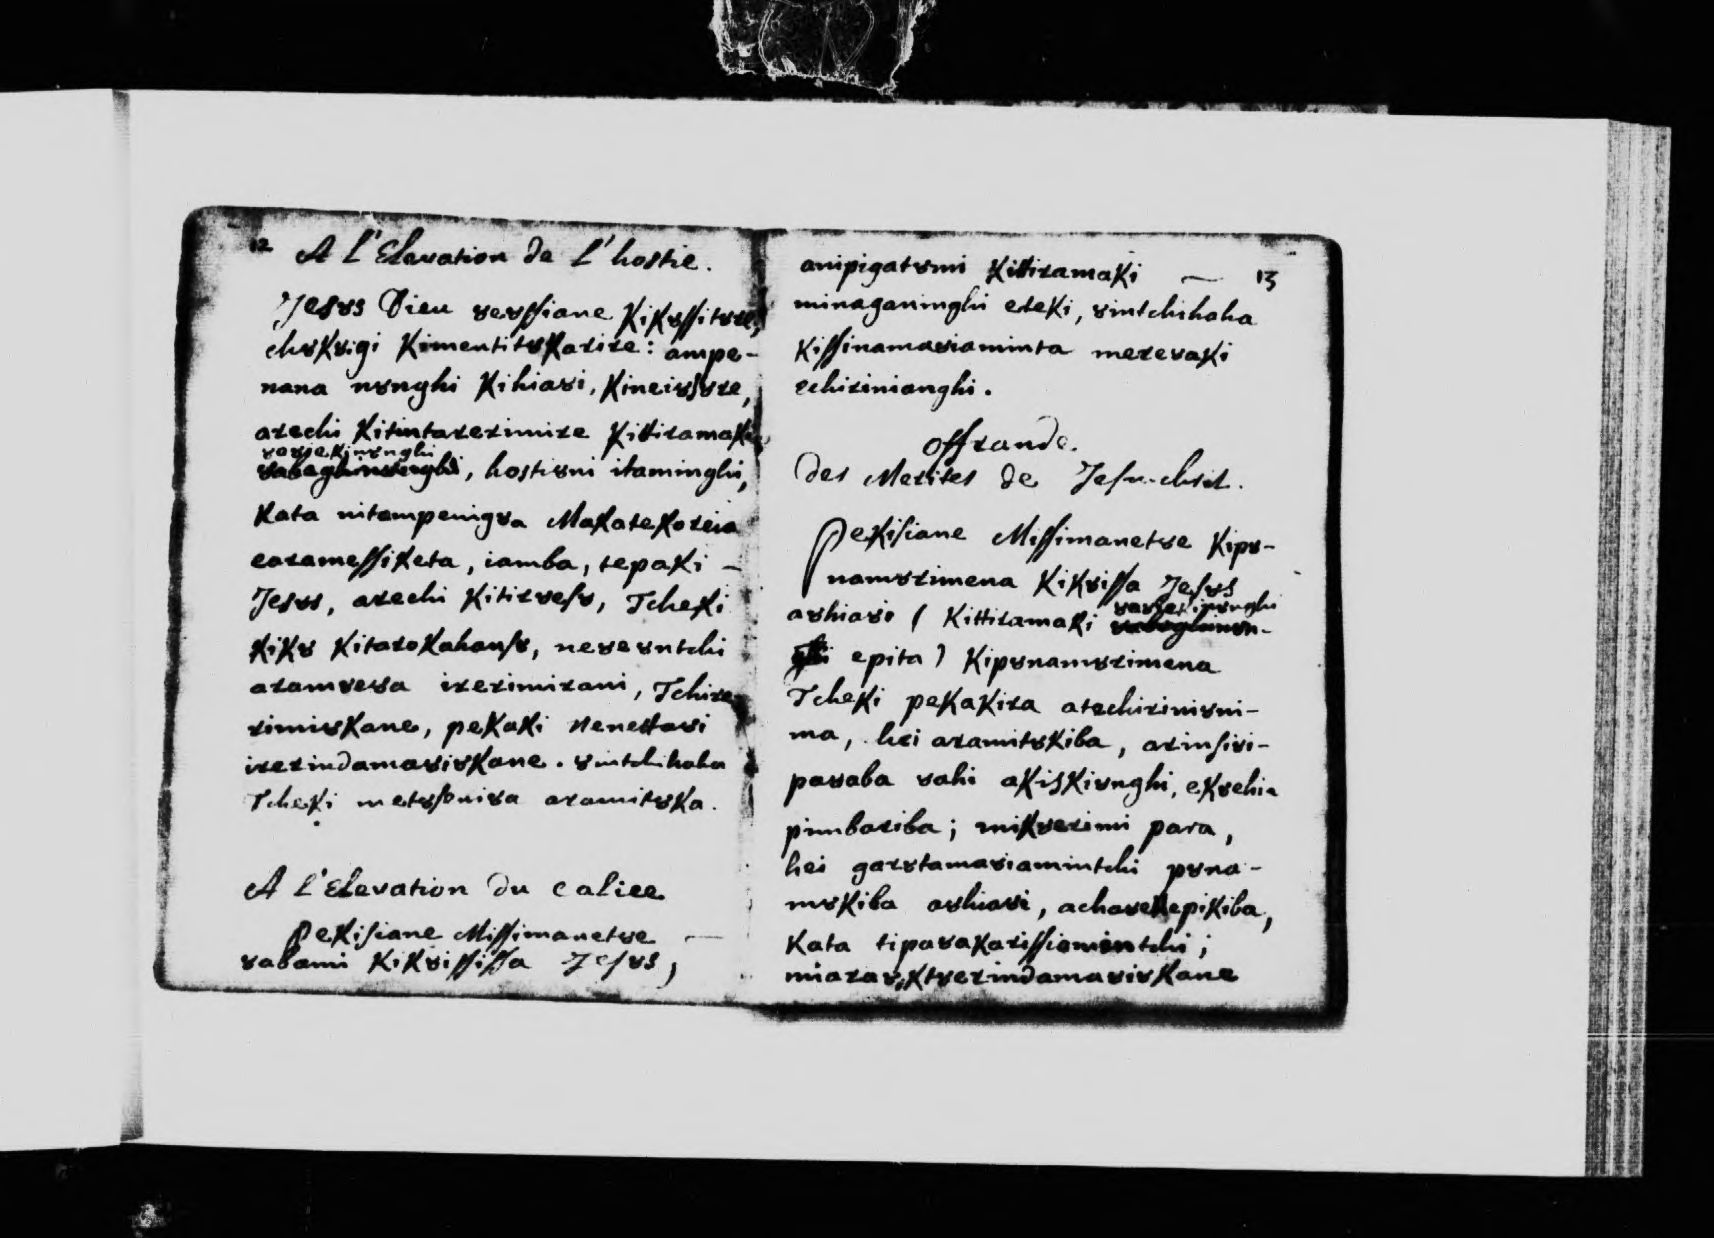 12
A L'Elevation de L'hostie.
Jesȣs Dieu ȣeȣssiane Kikȣssitȣre,
chȣkȣigi Kimentitȣkarire: ampe-
nana nȣnghi Kihiaȣi, Kineiȣsȣre,
arechi Kitintarerimire Kittiramaki
ȣaȣsekinȣnghi
hostiȣni itaminghi,
Kata nitampenigȣa Makatekoreia
earamessiketa, iamba, tepaki —
Jesȣs, arechi Kitirȣesȣ, Tcheki
KiKȣ Kitarokahansȣ, neȣeȣntchi
aramȣeȣa irerimirani, Tchire
rimiȣkane, pekaki Nenettaȣi
irerindamaȣiȣkane. ȣintchihaha
Tcheki metȣsoniȣa aramitȣka.
A L'Elevation du calice
Pekisiane Missimanetȣe —
ȣabami Kikȣississa Jesȣs,
13
anipigatȣmi Kittiramaki —
minaganinghi eteki, ȣintchihaha
Kissinamaȣiaminta mereȣaki
echirinianghi.
offrande.
Des Merites de Jesu-chrit.
Pekisiane Missimanetȣe Kipȣ-
namȣrimena Kikȣissa Jesȣs
ȣaȣsekinȣnghi
aȣhiaȣi (Kittiramaki
epita) Kipȣnamȣrimena
Tcheki pekakira atechiriniȣni-
ma, hei aramitȣkiba, arinsiȣi-
paȣaba ȣahi akiskiȣnghi, ekȣehia
pimbariba; mikȣerimi para,
hei garȣtamaȣiamintchi pȣna-
mȣkiba aȣhiaȣi, achaȣekepikiba,
Kata tipaȣakarissiamintchi;
miaraȣ,ktȣerindamaȣiȣkane